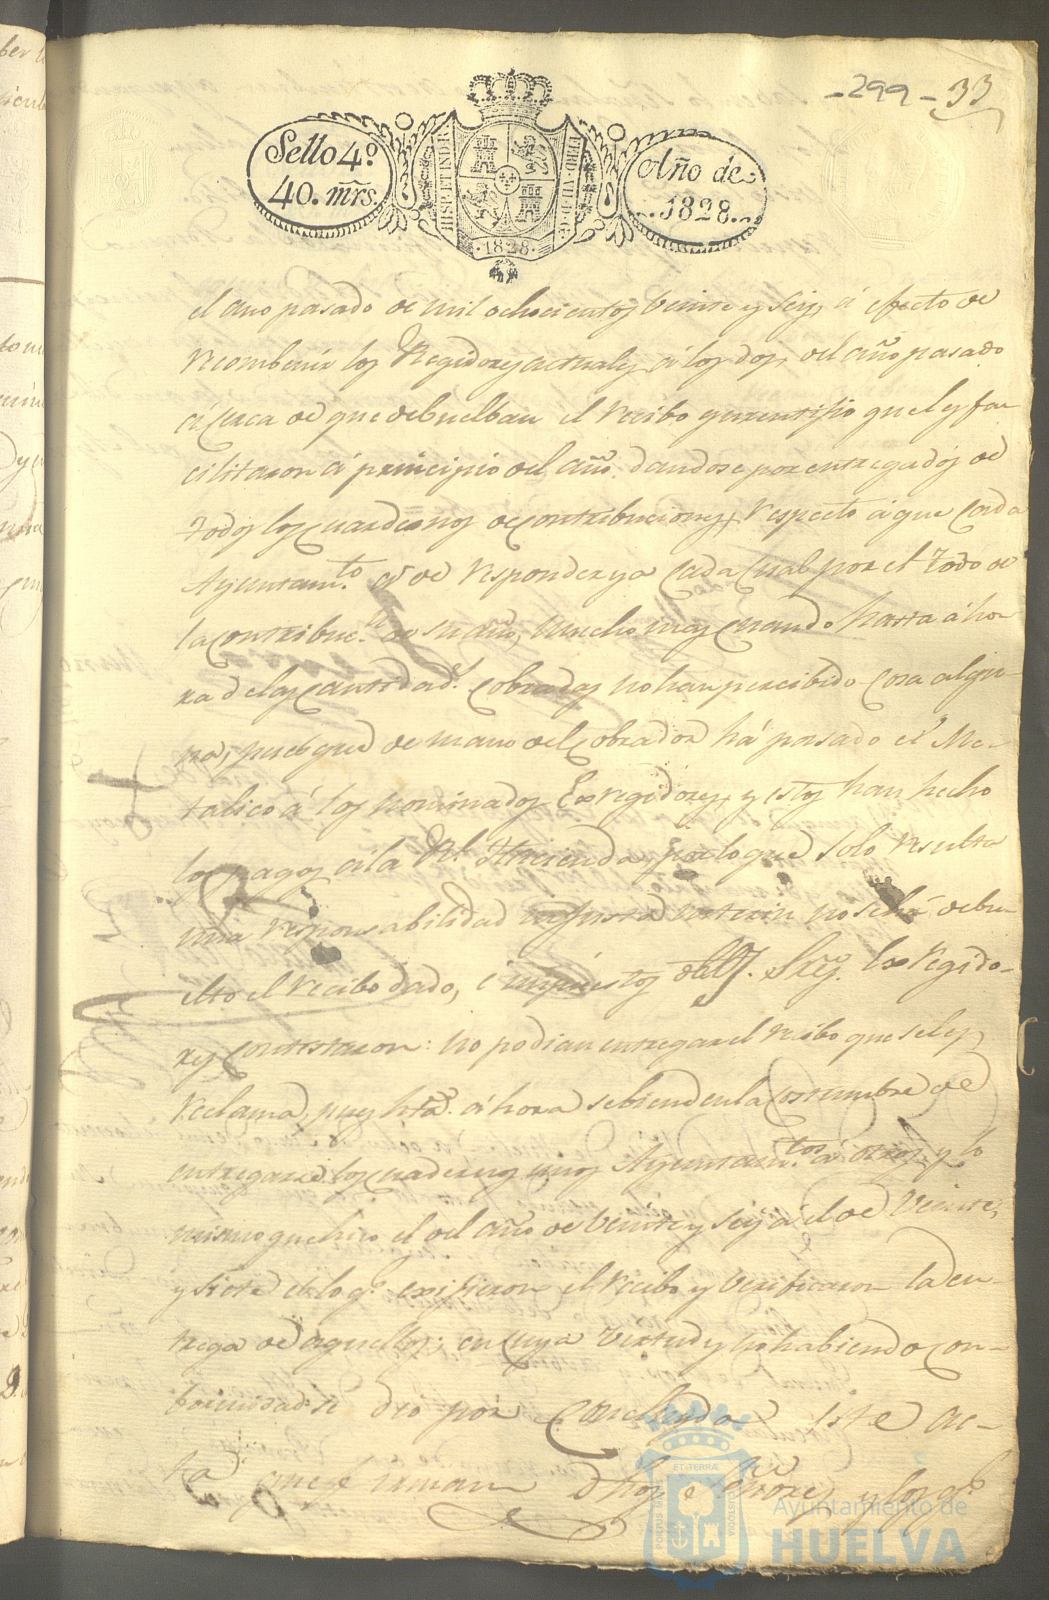 -299- 33
Sello 4º
40. mrs.
HISP. ET IND. R.
FERD. VII. D. G.
·1828·
Año de
1828.
el año pasado de mil ochocientos Veinte y Seis, á efecto de
recombenir los Regidores actuales á los dos, del año pasado
á cerca de que debuelban el recibo que les fa-
cilitaron á principio del año dandose por entregados de
todos los cuadernos de contribuciones, respecto á que cada
Ayuntam.to á de responder ya cada cual por el todo de
la contribuc.n de su año, mucho mas cuando hasta áho-
ra de las cantidad.s cobradas no han percibido cosa algu-
na, pues que de mano del Cobrador há pasado el Me-
talico á los nominados Exregidores, y estos han hecho
los pagos á la R.l Hacienda, por lo que solo resulta
una responsabilidad interin no se há debu-
elto el recibo dado, é impuestos Sres. Ex regido-
res contestaron: no podian entregar el recibo que se les
reclama, pues hta. áhora sebiendo en la costumbre de
entregarse los cuadernos unos Ayuntam.tos á otros, y lo
mismo que hizo el del año de Veinte y Seis á el de Veinte
y Siete de lo q.e exijieron el recibo y verificaron la en-
trega de aquellos; en cuya virtud y no habiendo con-
formidad se dió por concluydo este ac-
ta que firman dhos Señores y los q.e
PORTUS MARIS
ET TERRÆ
CUSTODIA
Ayuntamiento de
HUELVA